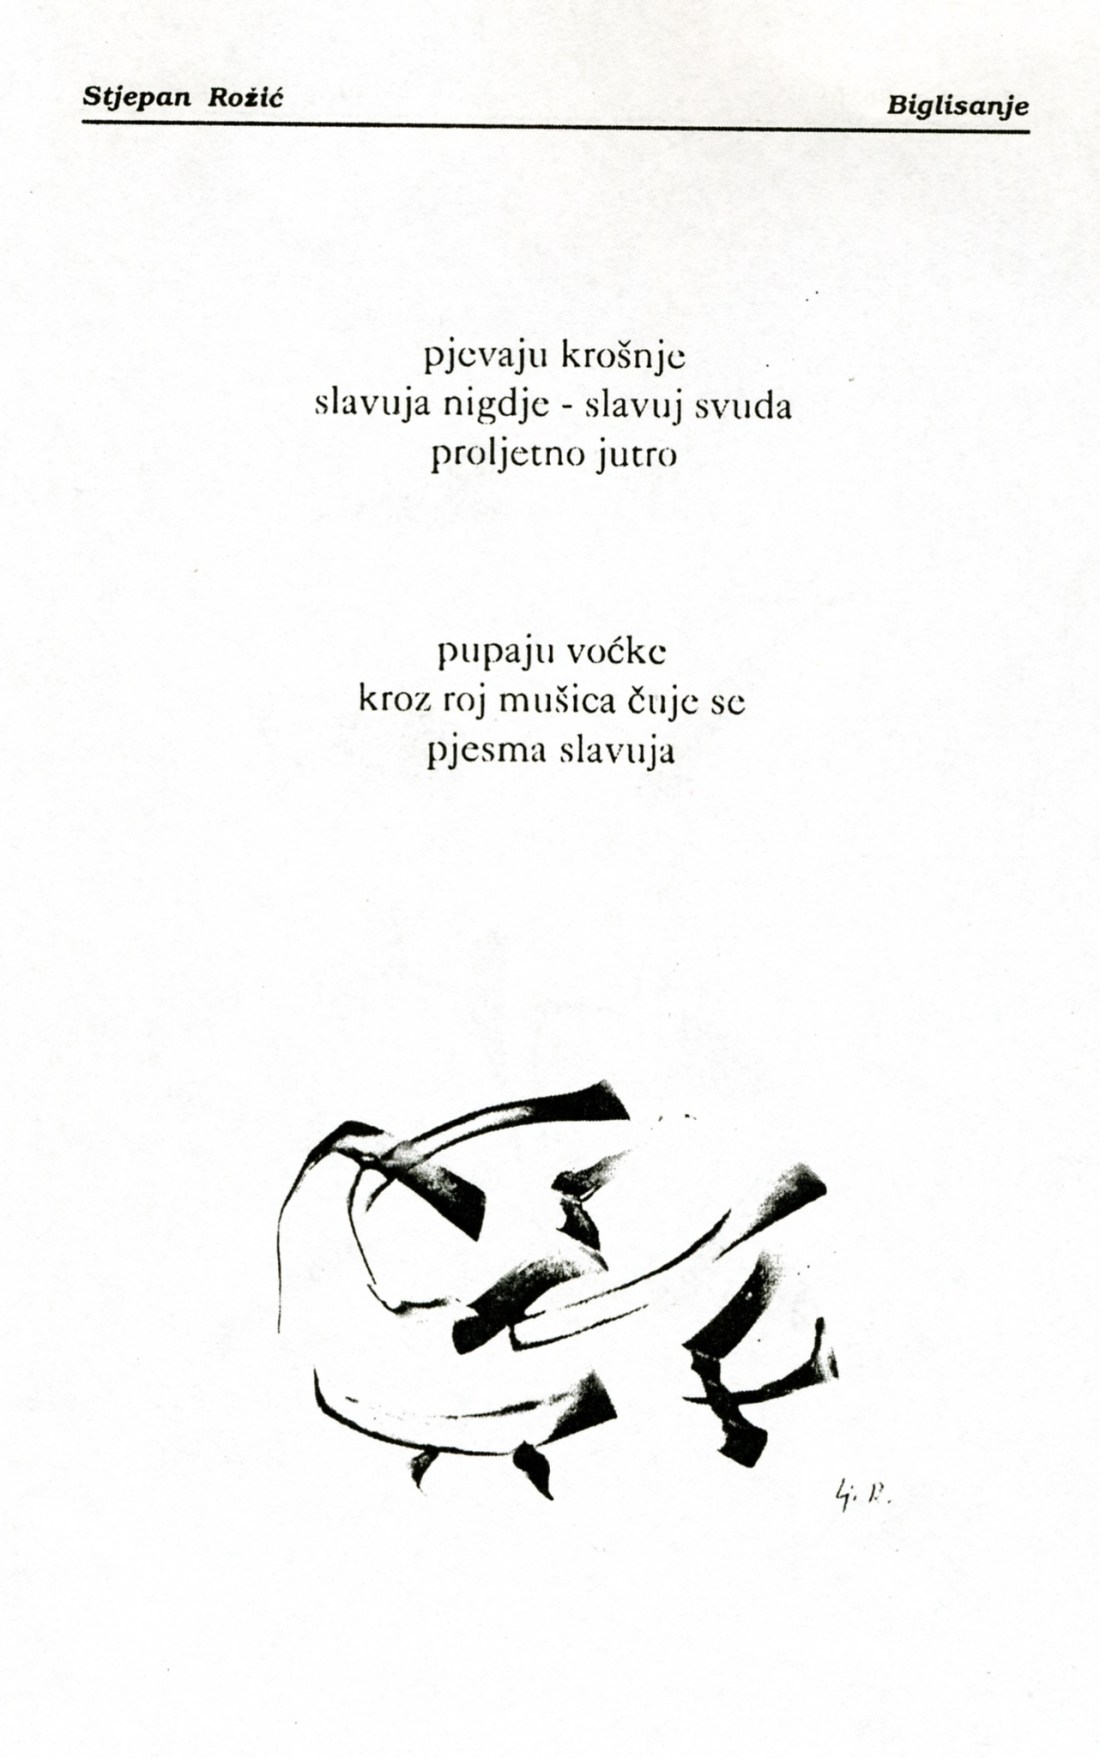 Stjepan Rožić
Biglisanje
pjevaju krošnje
slavuja nigdje - slavuj svuda
proljetno jutro
pupaju voćke
kroz roj mušica čuje se
pjesma slavuja
Lj. R.